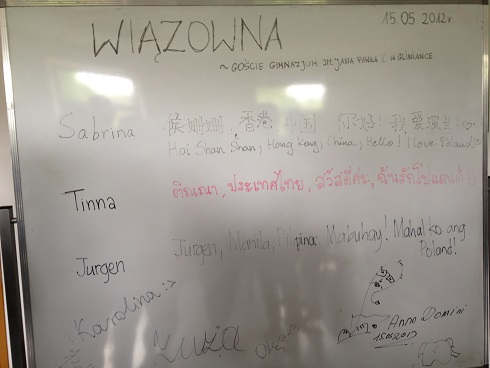 15 05 2012r
WIĄZOWNA
~ GOŚCIE GIMNAZJUM IM. JANA PAWŁA II W GLINIANCE
Sabrina
侯姗姗, 香港 中国 你好! 我爱波兰!♡
Hoi Shan Shan, Hong Kong, China, Hello! I love Poland!
Tinna
ติณณา, ประเทศไทย, สวัสดีค่ะ, ฉันรักโปแลนด์
Jurgen
Jurgen, Manila, Pilipinas, Mabuhay! Mahal ko ang
Poland!
Karolina :>
Zuzia
Anno Domini